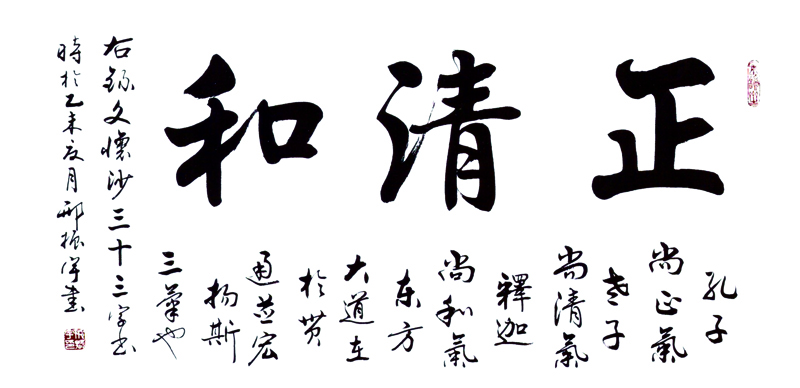 正清和
孔子
尚正氣
老子
尚清氣
釋迦
尚和氣
东方
大道在
於贯
通並宏
扬斯
三氣也
右錄文懷沙三十三字书
時於乙未夏月邢振書